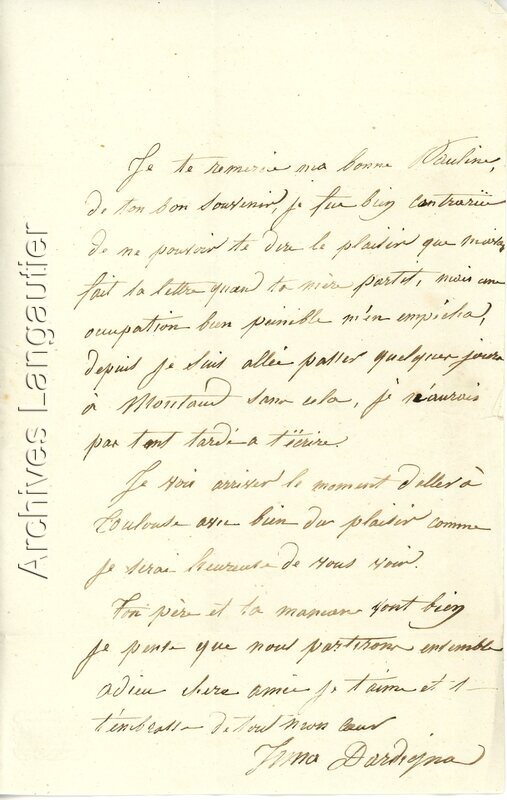 Je te remercie ma bonne Pauline,
de ton bon souvenir, je fue bien contrariée
de ne pouvoir te dire le plaisir que m'avez
fait ta lettre quand ta mère partit, mais une
ocupation bien peinible m'en empêcha,
depuis je suis allée passer quelques jours
à Montaud sans cela, je n'aurais
pas tent tardé a t'écrire.
Je vois arriver le moment d'aller à
Toulouse avec bien du plaisir comme
je serai heureuse de vous voir.
Ton père et ta maman vont bien
je pense que nous partirons ensemble
adieu chere amie je t'aime et
t'embrasse de tout mon cœur
Irma Dardigna
Archives Langautier